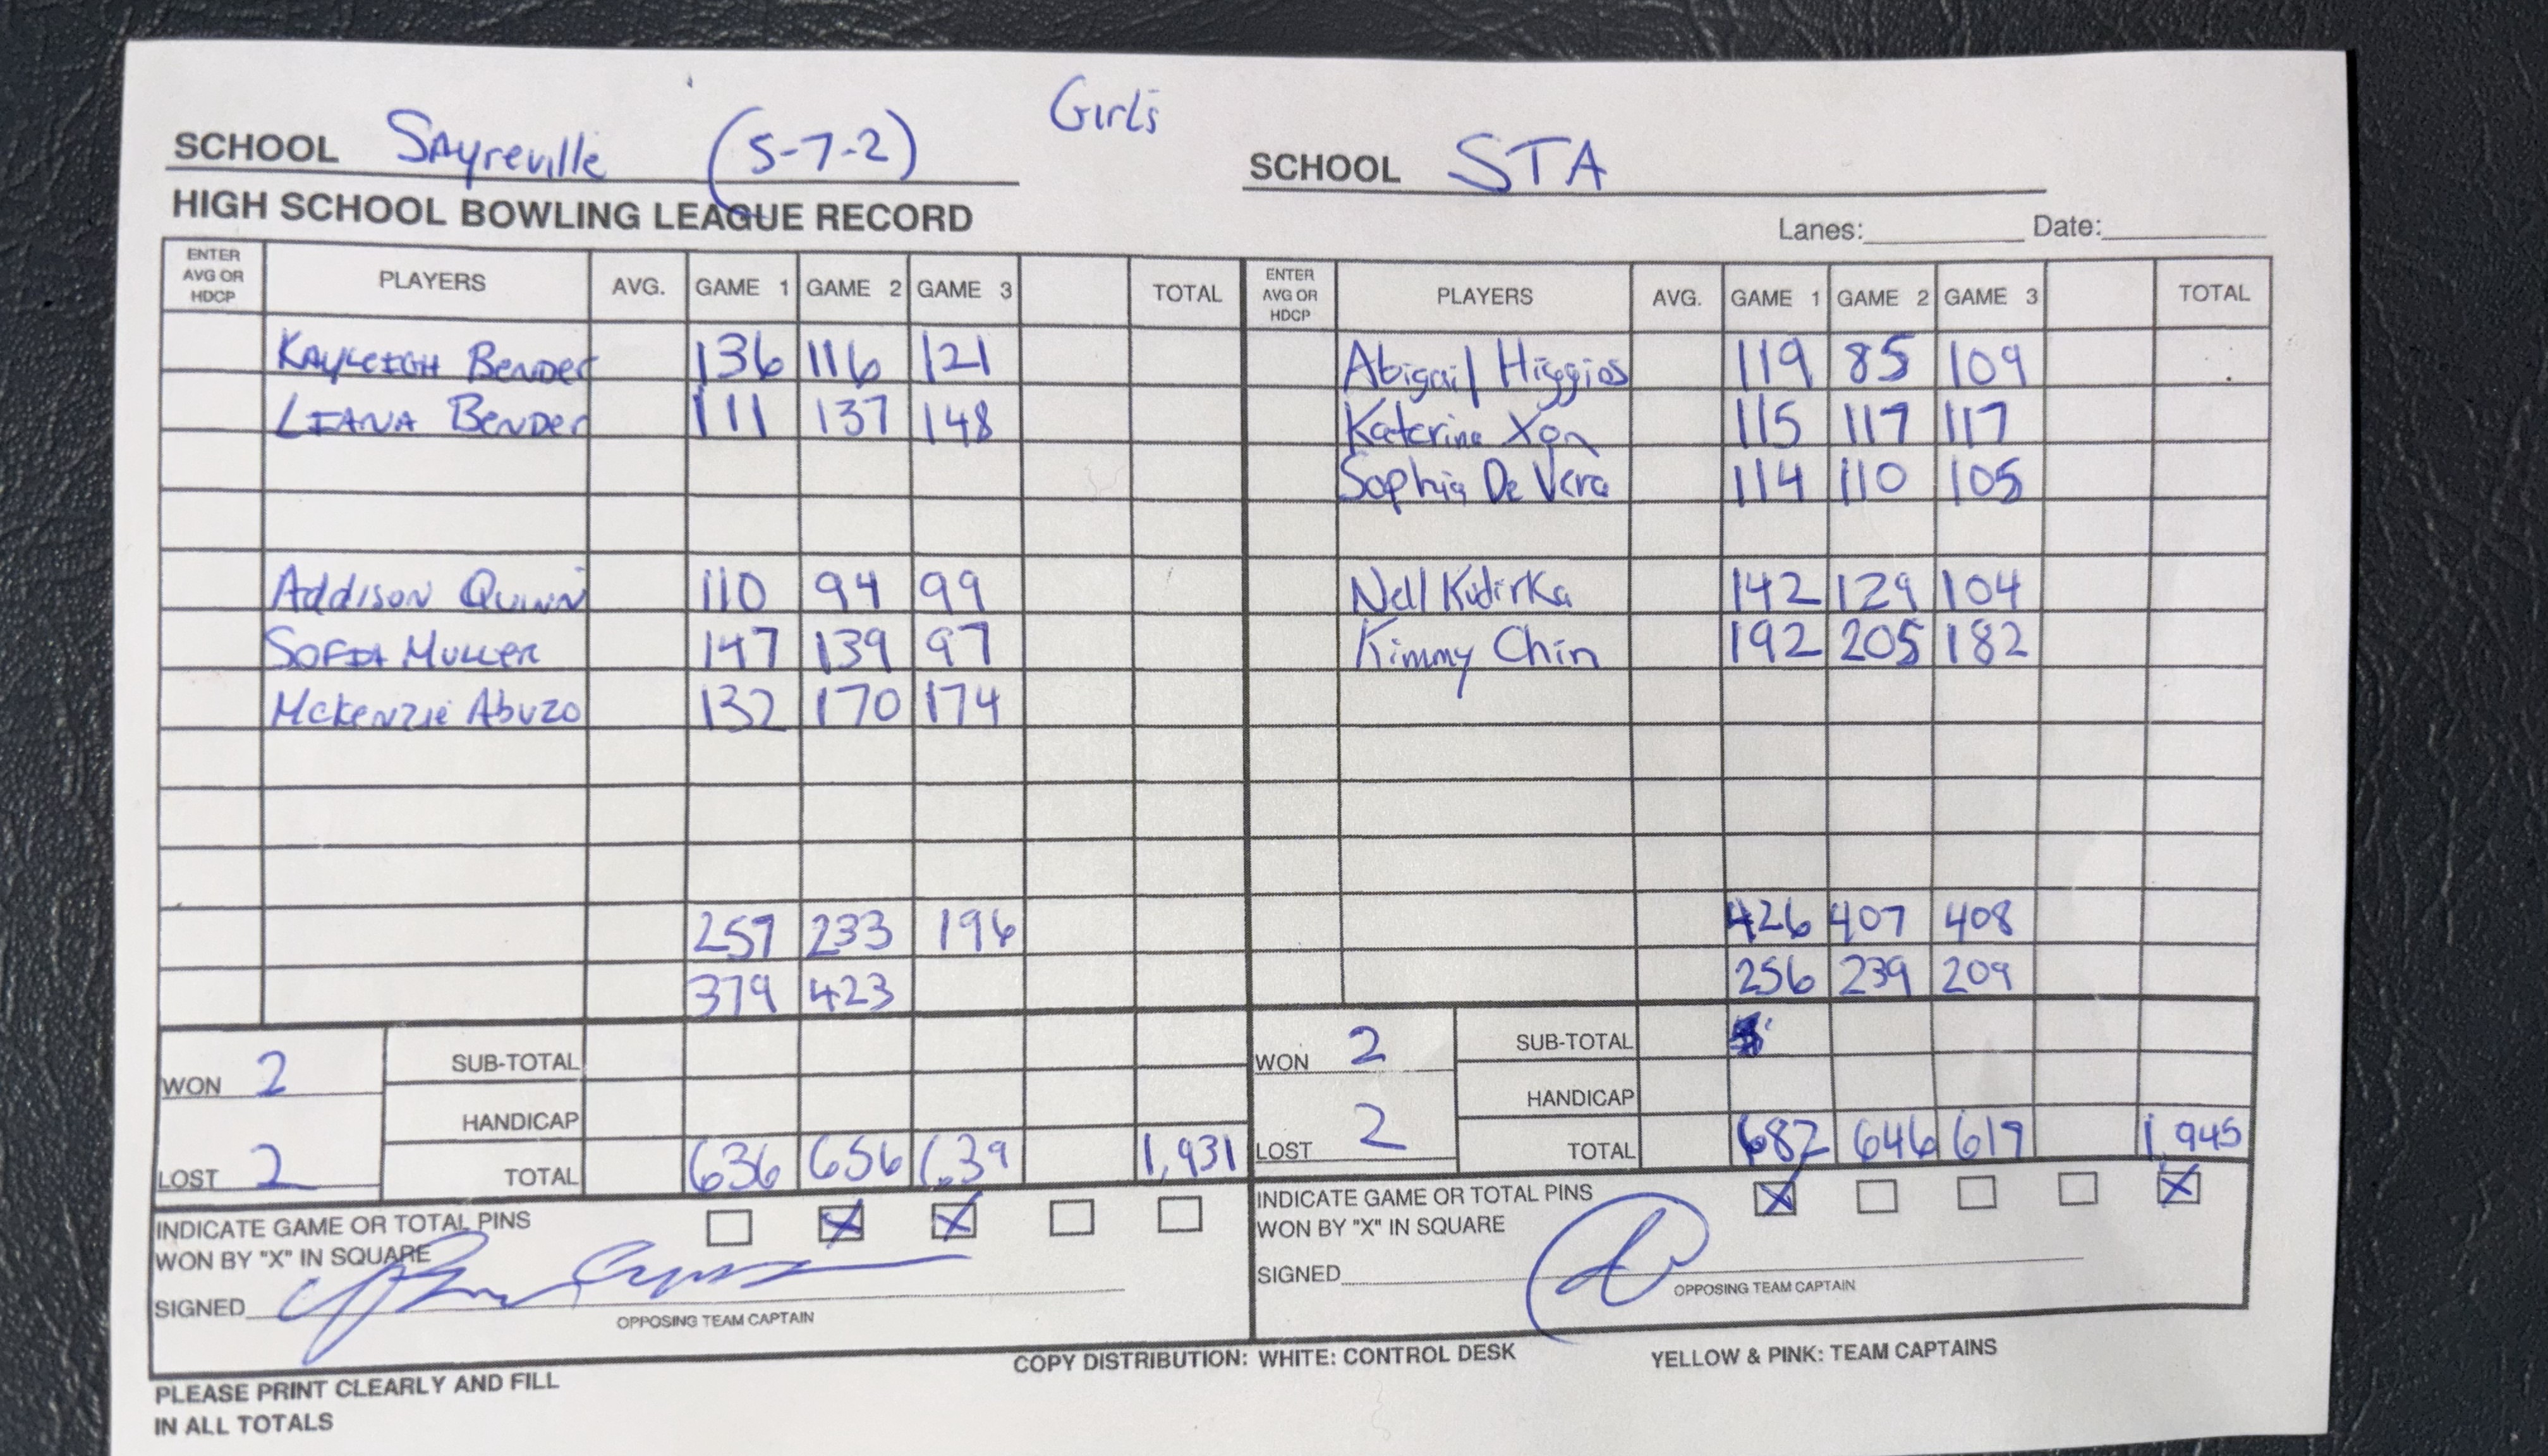 Girls
SCHOOL Sayreville (5-7-2) SCHOOL STA
HIGH SCHOOL BOWLING LEAGUE RECORD
Lanes: Date:
ENTER AVG OR HDCP PLAYERS AVG. GAME 1 GAME 2 GAME 3 TOTAL ENTER AVG OR HDCP PLAYERS AVG. GAME 1 GAME 2 GAME 3 TOTAL
KAYLEIGH Bender 136 116 121 Abigail Higgios 119 85 109
LIANA Bender 111 137 148 Katerina Xon 115 117 117
Sophia De Vera 114 110 105
Addison Quinn 110 94 99 Nell Kudirka 142 129 104
SOFIA MULLER 147 139 97 Kimmy Chin 192 205 182
McKenzie Abuzo 132 170 174
257 233 196 426 407 408
379 423 256 239 209
WON 2 SUB-TOTAL WON 2 SUB-TOTAL
HANDICAP HANDICAP
LOST 2 TOTAL 636 656 639 1,931 LOST 2 TOTAL 682 646 617 1,945
INDICATE GAME OR TOTAL PINS WON BY "X" IN SQUARE X X INDICATE GAME OR TOTAL PINS WON BY "X" IN SQUARE X X
SIGNED SIGNED
OPPOSING TEAM CAPTAIN OPPOSING TEAM CAPTAIN
COPY DISTRIBUTION: WHITE: CONTROL DESK YELLOW & PINK: TEAM CAPTAINS
PLEASE PRINT CLEARLY AND FILL
IN ALL TOTALS